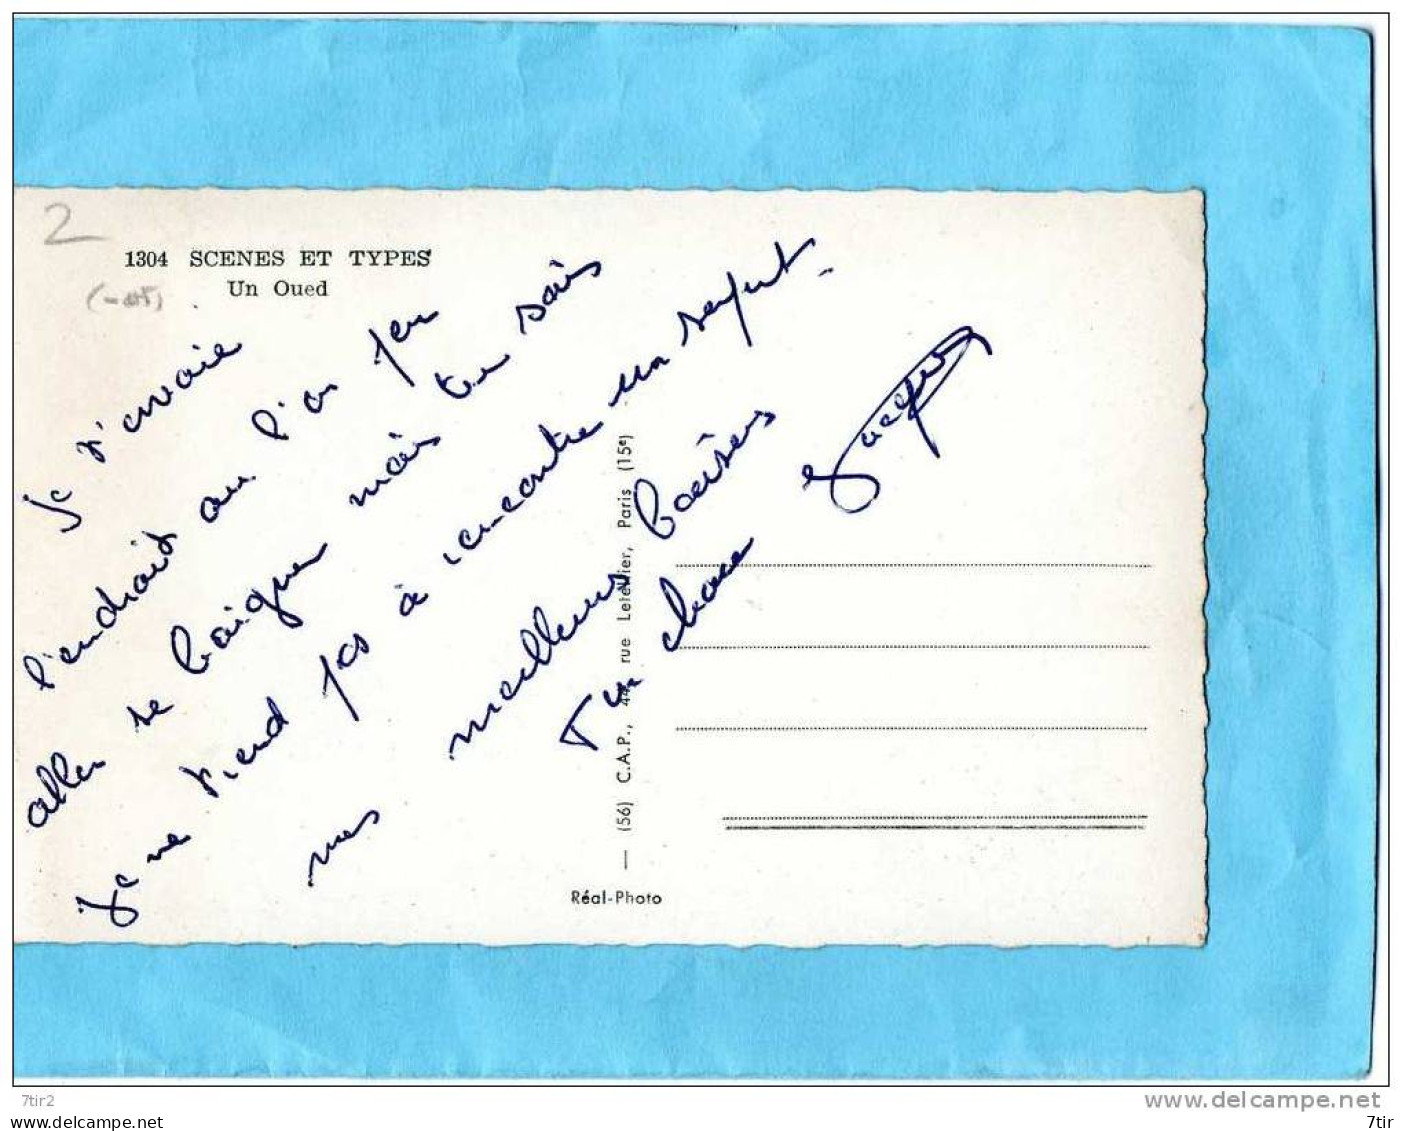 2
1304 SCENES ET TYPES
Un Oued
Je t'envoie
l'endroit ou l'on peu
aller se baigner mais tu sais
Je ne tiend pas à rencontre un serpent.
mes meilleurs baisers
Ton
Jacques
— (56) C.A.P., 44, rue Letellier, Paris (15e)
Réal-Photo
7tir2
www.delcampe.net
www.delcampe.net
7tir